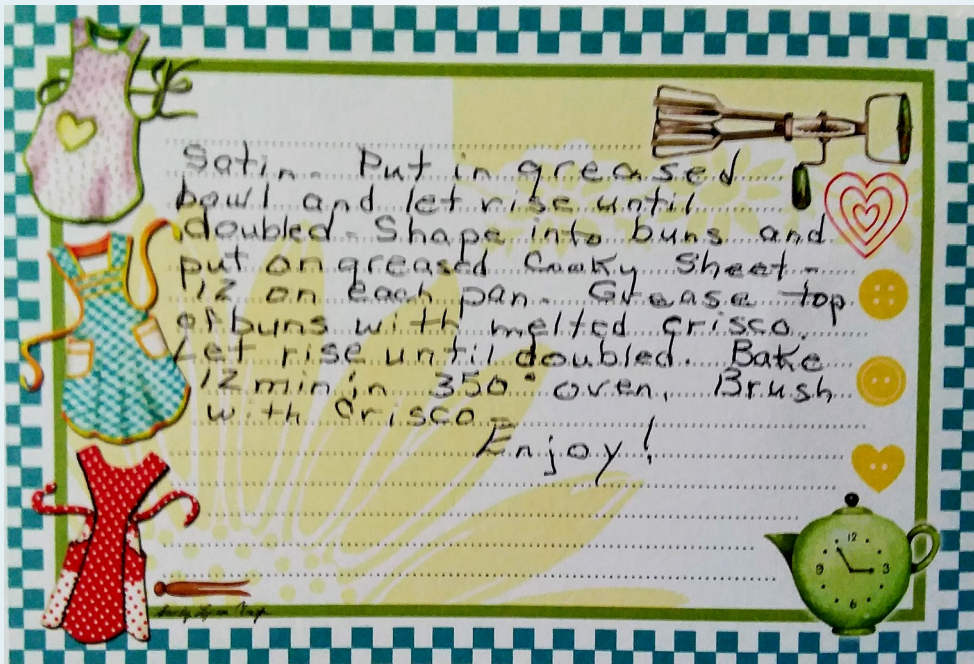 Satin. Put in greased
bowl and let rise until
doubled. Shape into buns and
put on greased Cooky Sheet -
12 on each pan. Grease top
of buns with melted crisco.
Let rise until doubled. Bake
12 min in 350° oven. Brush
with Crisco -
Enjoy!
12
9 3
6